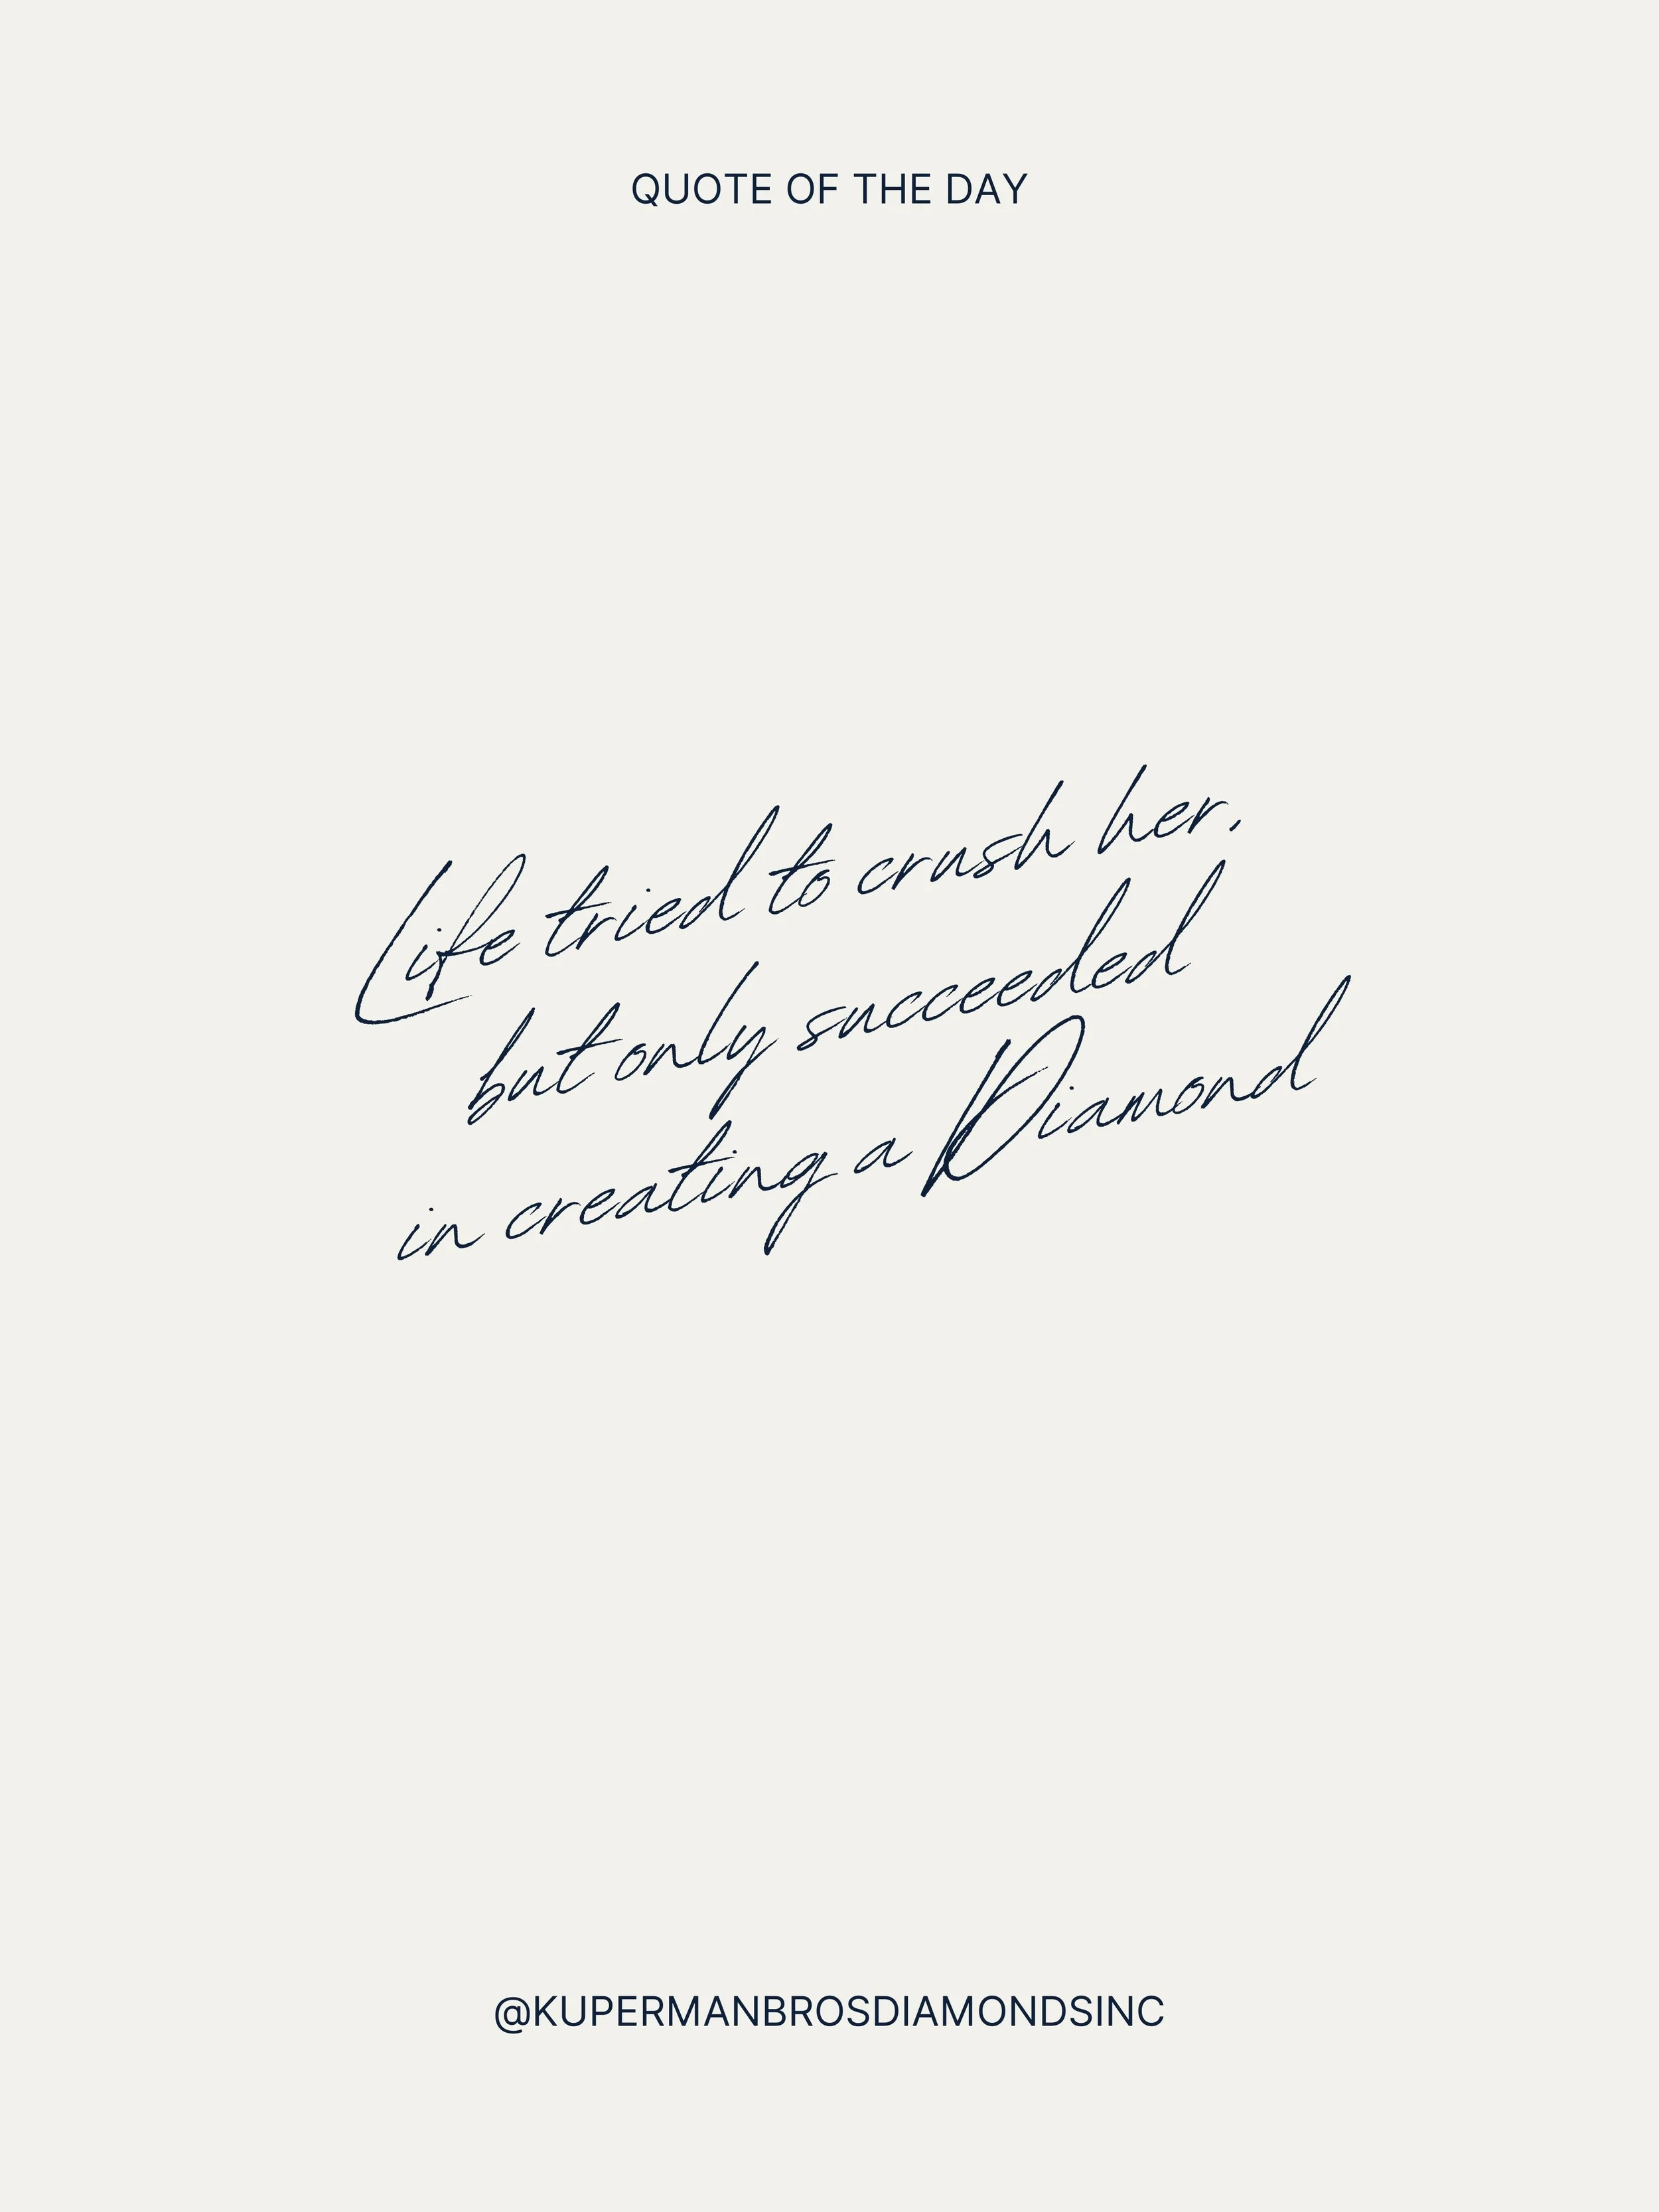 QUOTE OF THE DAY
Life tried to crush her,
but only succeeded
in creating a Diamond
@KUPERMANBROSDIAMONDSINC